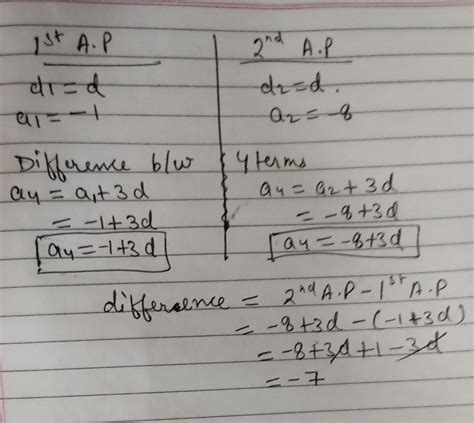 1st A.P
d1 = d
a1 = -1
2nd A.P
d2 = d.
a2 = -8
Difference b/w 4 terms
a4 = a1 + 3d
= -1 + 3d
a4 = -1 + 3d
a4 = a2 + 3d
= -8 + 3d
a4 = -8 + 3d
difference = 2nd A.P - 1st A.P
= -8 + 3d - (-1 + 3d)
= -8 + 3d + 1 - 3d
= -7